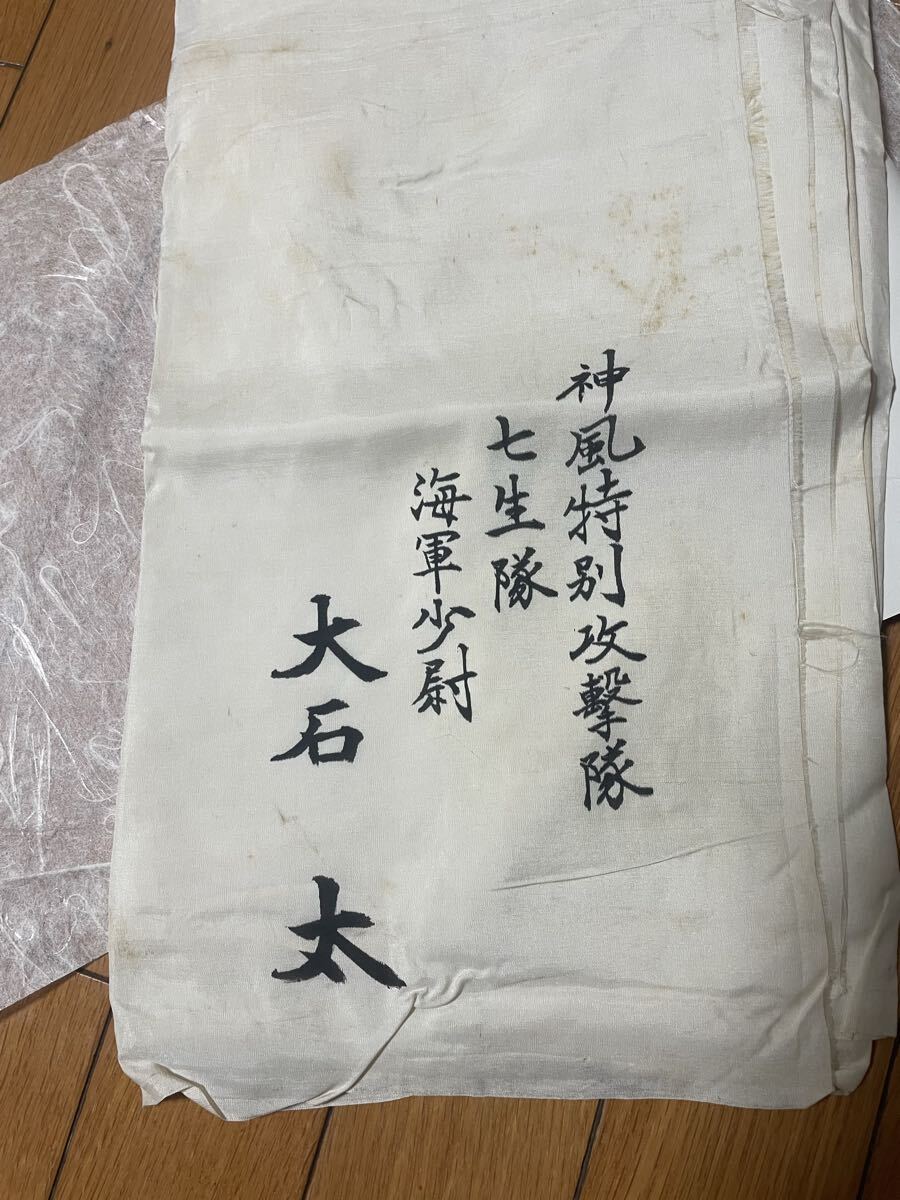 神風特別攻擊隊
七生隊
海軍少尉
大石 太